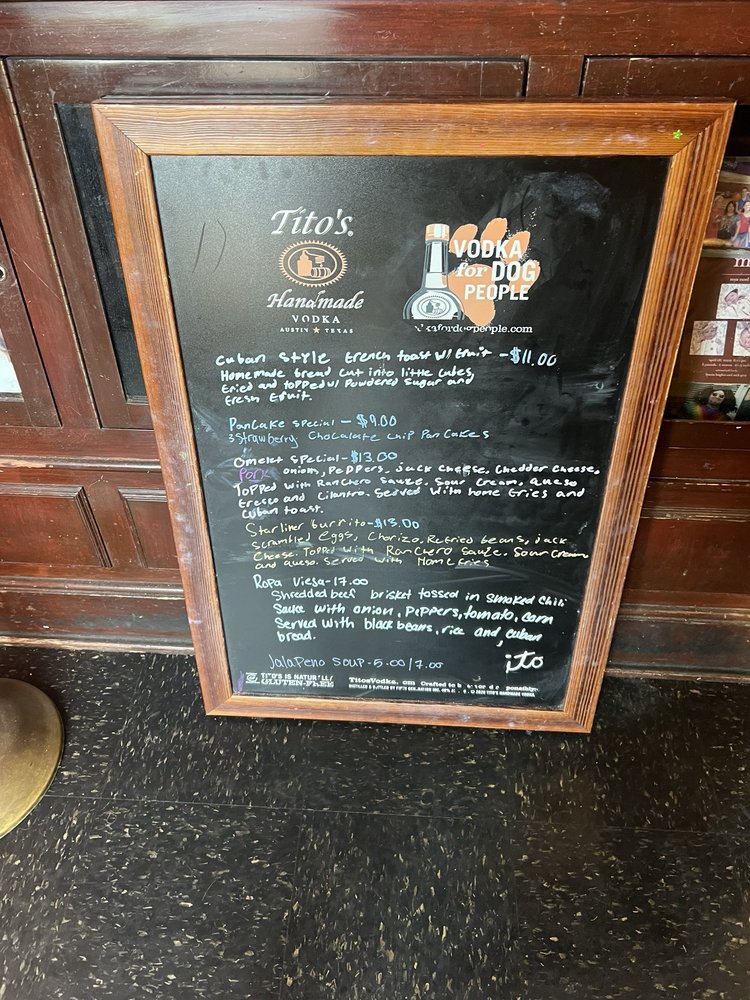 Tito's
Handmade
VODKA
AUSTIN ★ TEXAS
VODKA
for DOG
PEOPLE
vodkafordogpeople.com
Cuban Style French toast w/ Fruit - $11.00
Homemade bread cut into little cubes,
Fried and topped w/ Powdered sugar and
Fresh Fruit.
Pancake special - $9.00
3 Strawberry Chocalate chip Pancakes
Omelet Special - $13.00
Pork onions, Peppers, Jack cheese, Chedder cheese,
Topped with Ranchero Sauce, Sour cream, Queso
Fresco and Cilantro. Served with home fries and
Cuban toast.
Starliner burrito - $15.00
Scrambled eggs, Chorizo, Refried beans, Jack
Cheese. Topped with Ranchero Sauce, Sour cream
and queso. Served with Home fries
Ropa Viesa - 17.00
Shredded beef brisket tossed in smoked Chili
Sauce with onion, peppers, tomato, corn
Served with black beans, rice and, cuban
bread.
ito
Jalapeno Soup - 5.00/7.00
TITO'S IS NATURALLY
GLUTEN-FREE
TitosVodka. om Crafted to b